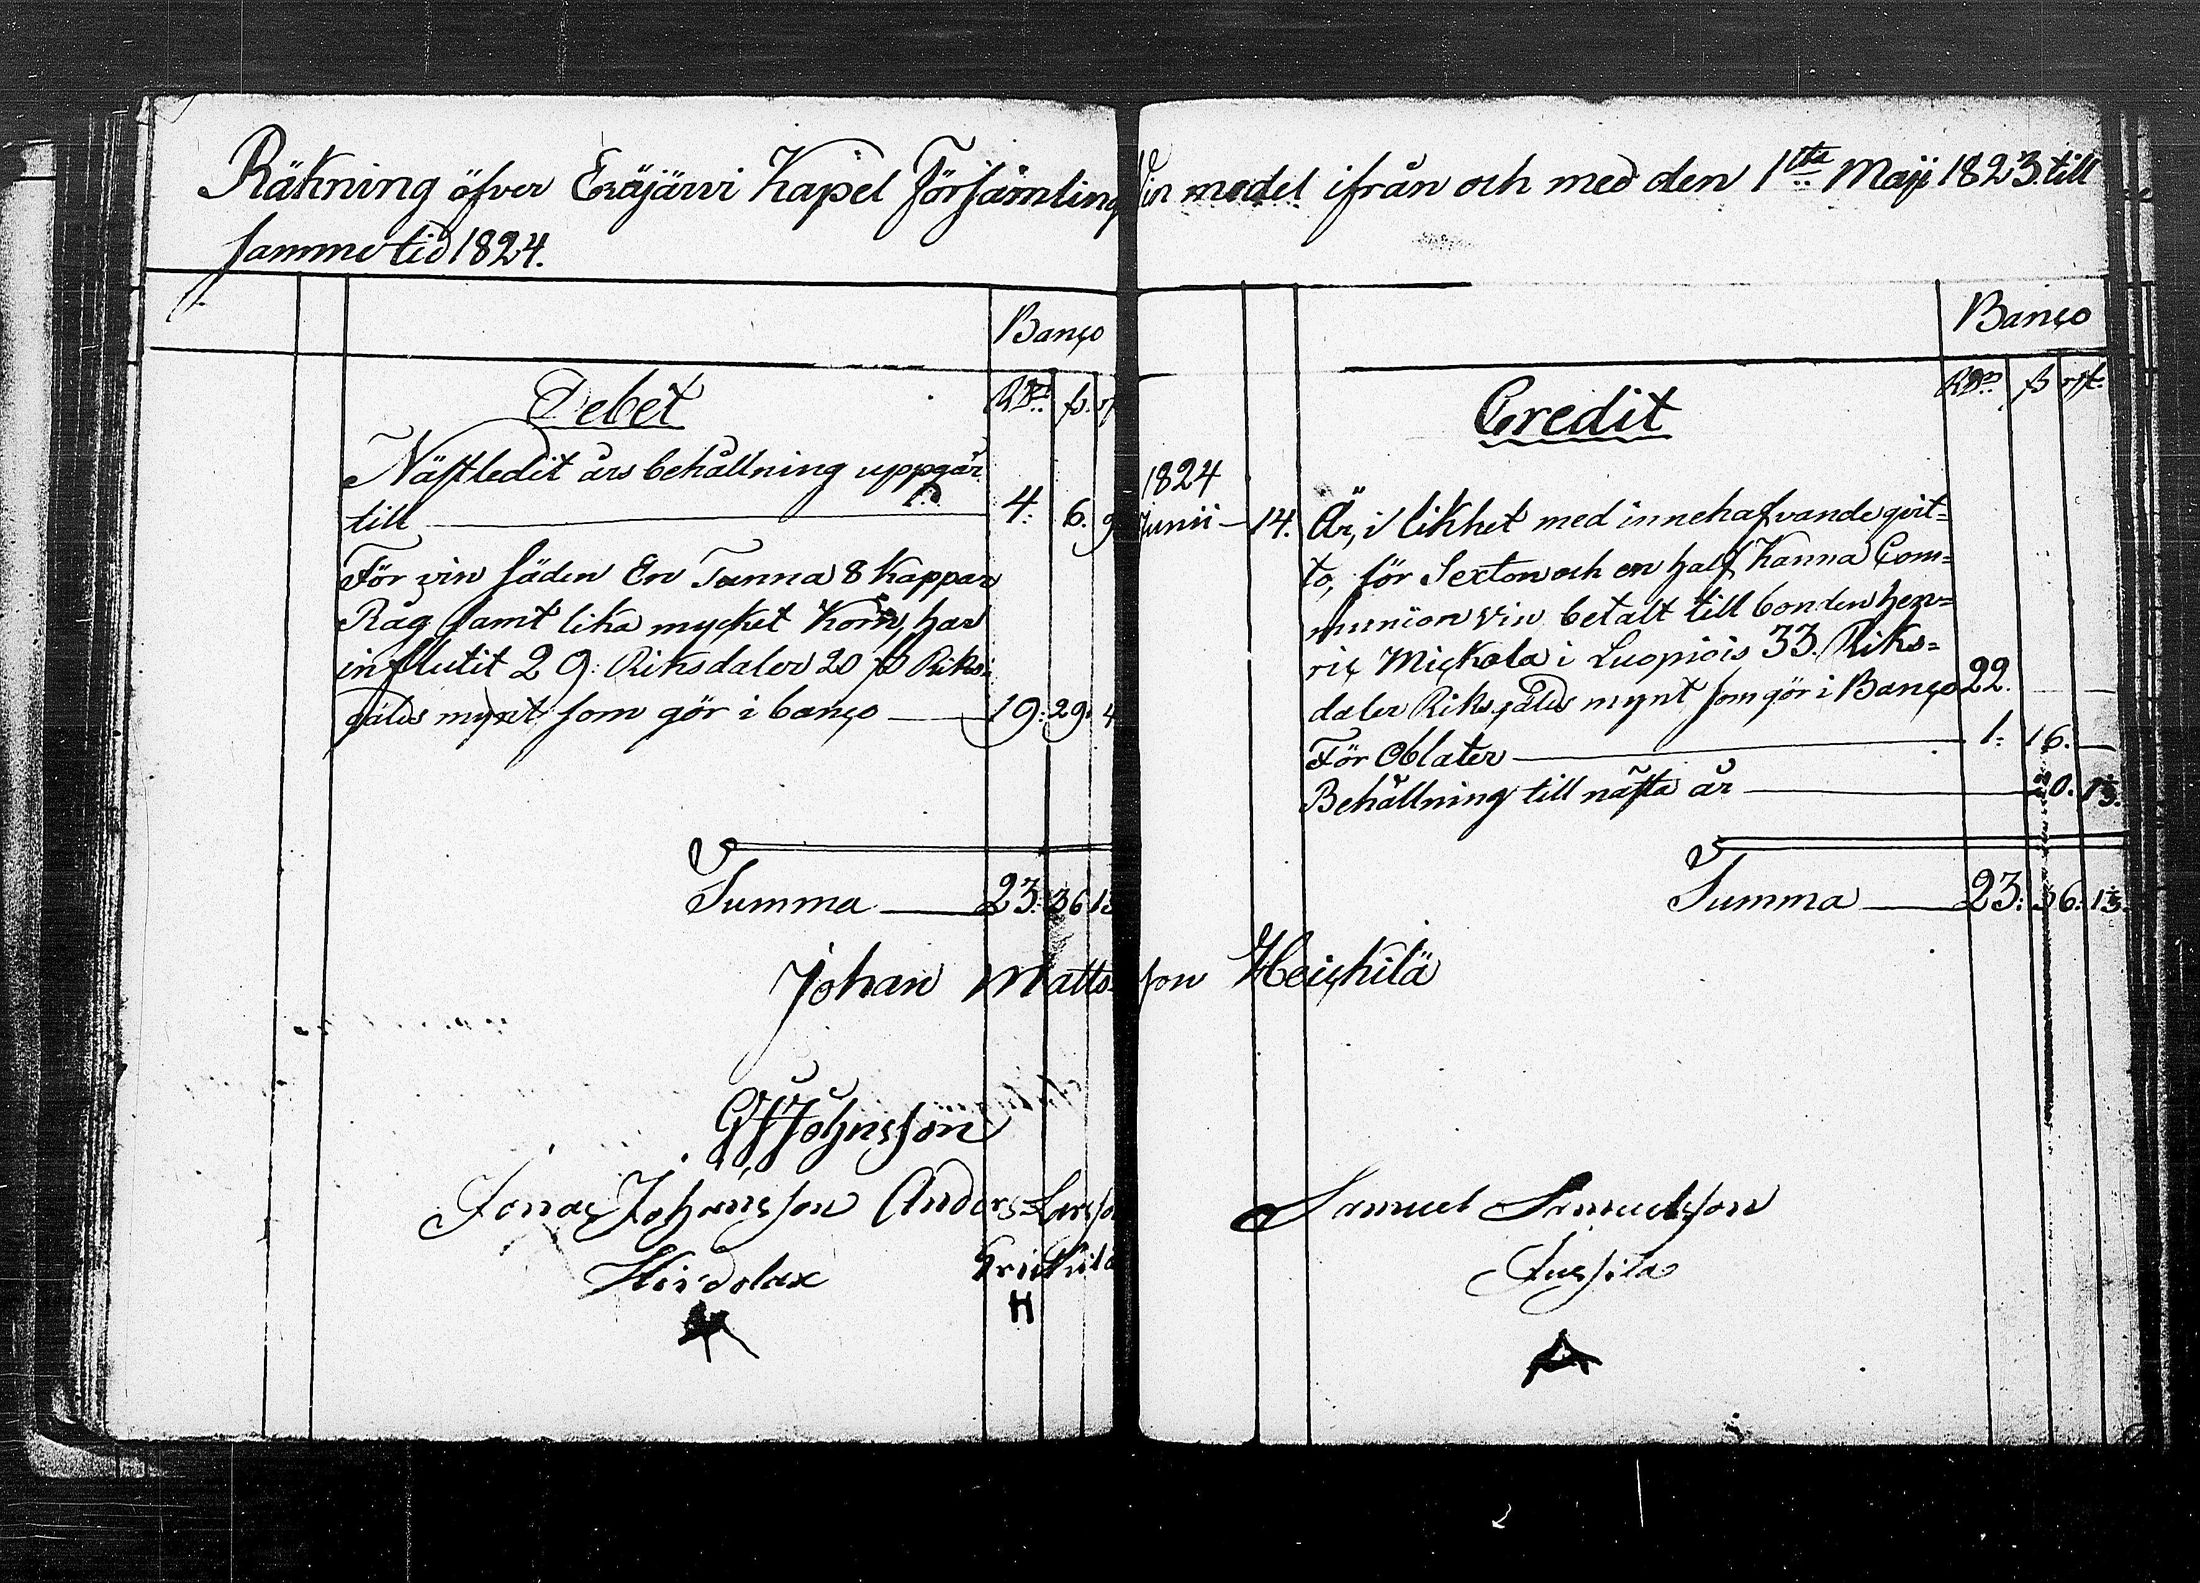 Räkning öfver Eräjärvi Kapel Församling Vin medel ifrån och med den 1sta Maji 1823 till
samme tid 1824.
Banço
Debet
RDr ß. rs
Nästledit års behållning uppgår
till 4: 6. 9
För vin säden En Tunna 8 kappar
Råg samt lika mycket Korn, har
influtit 29: Riksdaler 20 ß Riks:
gälds mynt som gör i banço 19: 29: 4
Summa 23: 36 13
Banço
Credit
RDr ß rst:
1824
Junii 14. Är, i likhet med innehafvande qvit=
to, för Sexton och en half Kanna Com=
munion vin betalt till bonden Hen=
ric Mickola i Luopiois 33. Riks=
daler Riksgälds mynt som gör i Banço 22.
För Oblater 1: 16.
Behållning till nästa år 20. 13.
Summa 23: 36: 13.
Johan Matts son Heickilä
Johnsson
Jonas Johansson Anders Larsso
Hirdolax
H
Samuel Samuelsson
Jussila